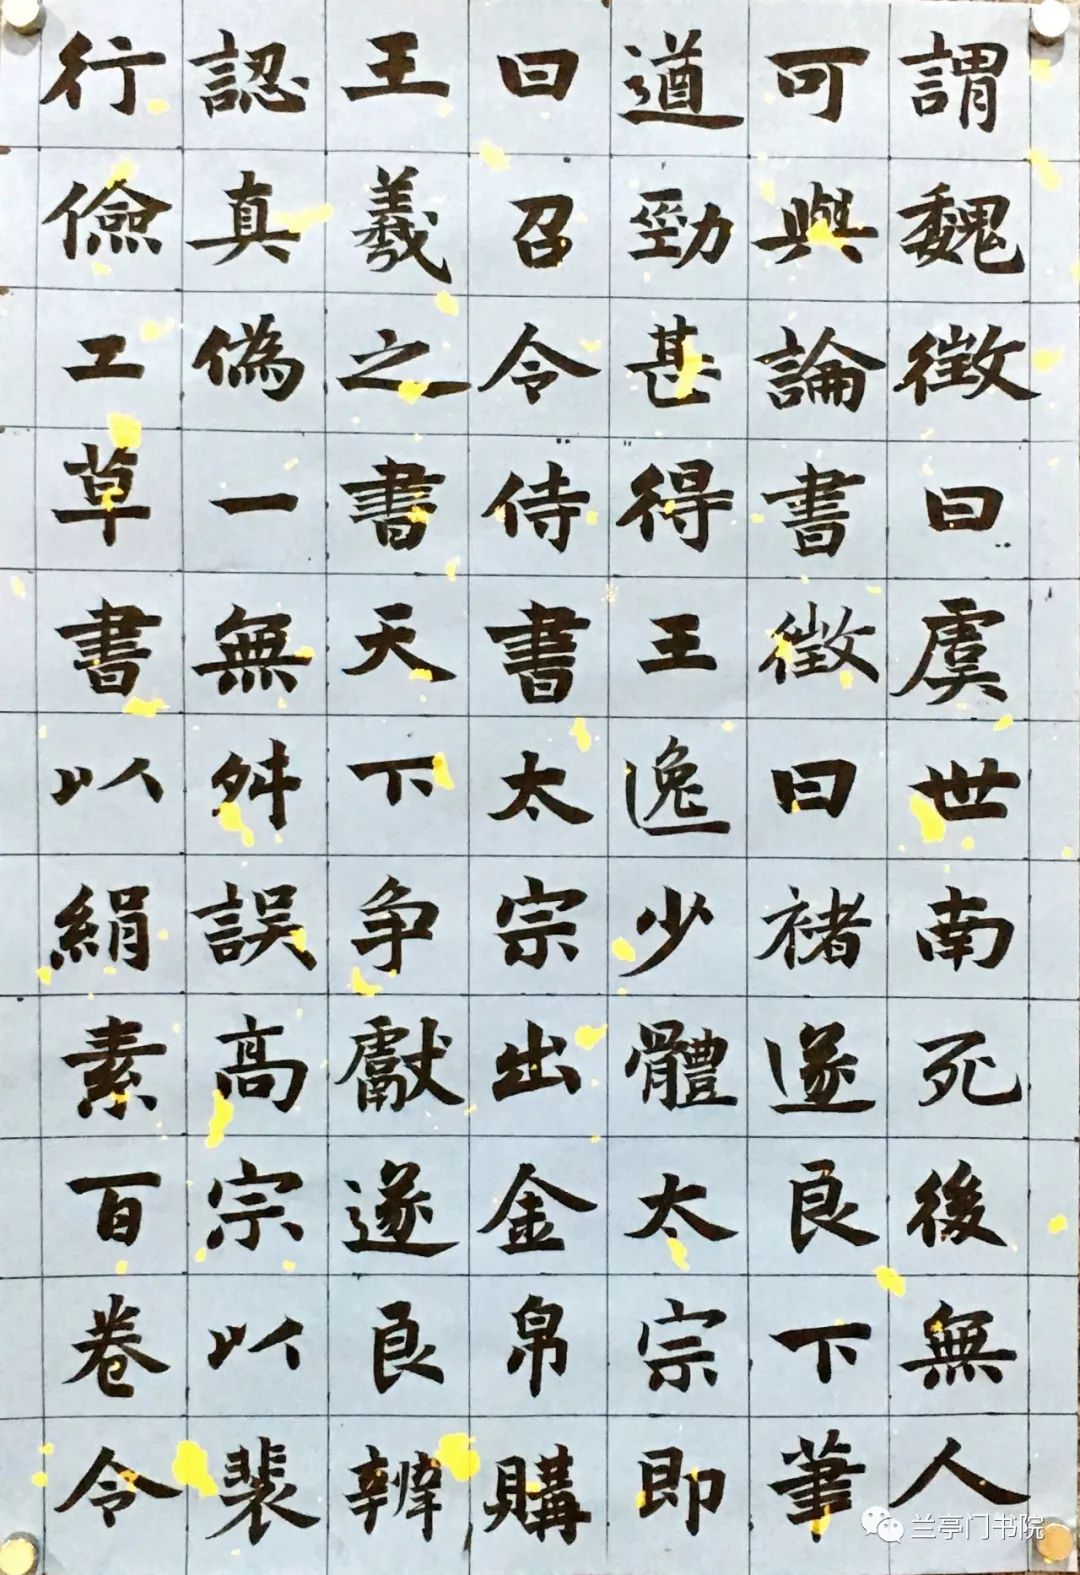 謂魏徵曰虞世南死後無人
可與論書徵曰褚遂良下筆
遒勁甚得王逸少體太宗即
日召令侍書太宗出金帛購
王羲之書天下争獻遂良辨
認真偽一無舛誤高宗以裴
行儉工草書以絹素百卷令
兰亭门书院